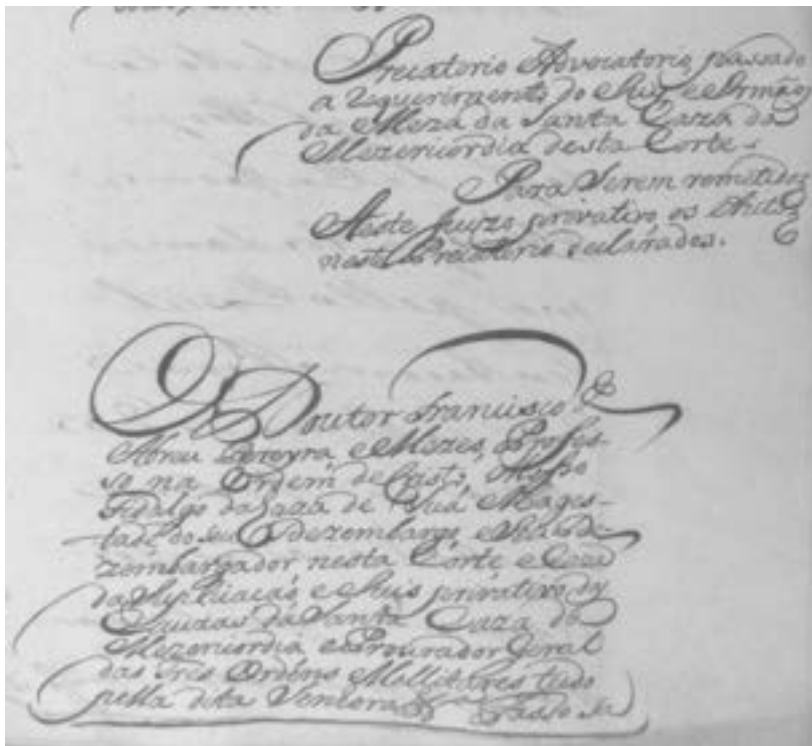 Precatorio Advocatorio, passado
a Requerimento do Juiz e Irmãos
da Meza da Santa Caza da
Mezericordia desta Corte.
Para Serem remetidos
Neste Juizo privativo os Autos
neste Precatorio declarados.
O Doutor Francisco de
Abreu Pereyra e Menezes, Profes-
so na Ordem de Cristo,
Fidalgo da Caza de Sua Mages-
tade do seu Dezembargo, e De-
zembargador nesta Corte e Caza
da Suplicaçaõ e Juis privativo das
Cauzas da Santa Caza da
Mezericordia e Procurador Geral
das Tres Ordens Millitares tudo
pella dita Senhora